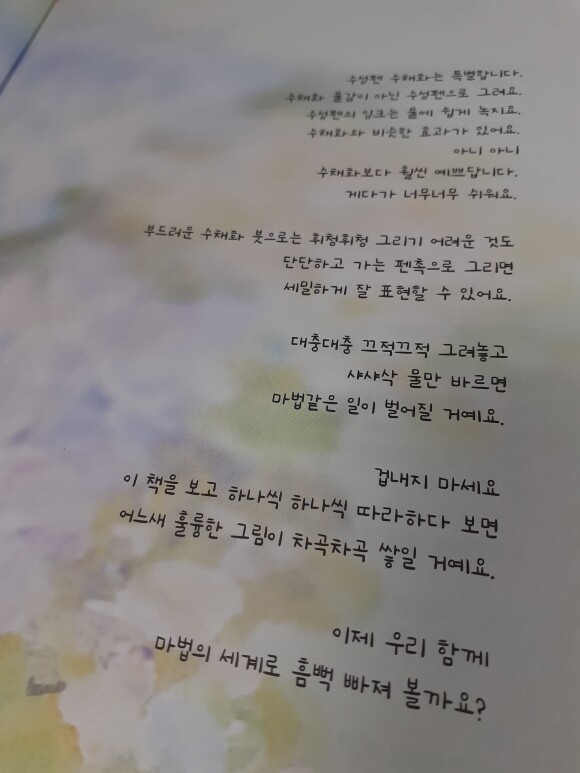 수성펜 수채화는 특별합니다.
수채화 물감이 아닌 수성펜으로 그려요.
수성펜의 잉크는 물에 쉽게 녹지요.
수채화와 비슷한 효과가 있어요.
아니 아니
수채화보다 훨씬 예쁘답니다.
게다가 너무너무 쉬워요.
부드러운 수채화 붓으로는 휘청휘청 그리기 어려운 것도
단단하고 가는 펜촉으로 그리면
세밀하게 잘 표현할 수 있어요.
대충대충 끄적끄적 그려놓고
샤샤삭 물만 바르면
마법같은 일이 벌어질 거예요.
겁내지 마세요
이 책을 보고 하나씩 하나씩 따라하다 보면
어느새 훌륭한 그림이 차곡차곡 쌓일 거예요.
이제 우리 함께
마법의 세계로 흠뻑 빠져 볼까요?